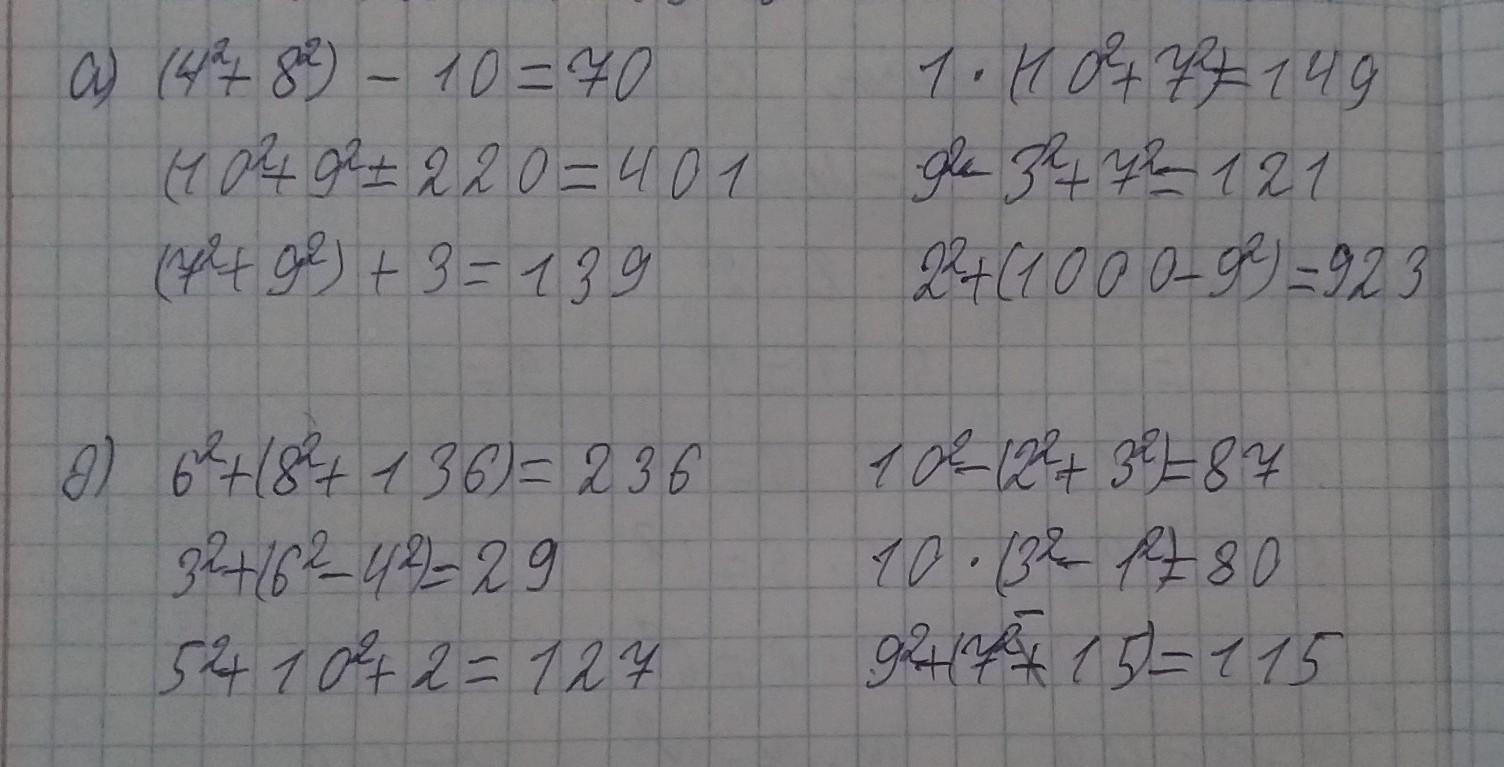 а) (4²+ 8²) – 10 = 70 1 · (10²+ 7²)=149
(10²+ 9²)+ 220 = 401 9²– 3²+ 7²= 121
(7²+ 9²) + 3 = 139 2²+(1000–9²) = 923
б) 6²+(8²+ 136)= 236 10²–(2²+ 3²)=87
3²+(6²–4²)= 29 10 · (3²– 1²)= 80
5²+ 10²+ 2 = 127 9²+(7²– 15)= 115